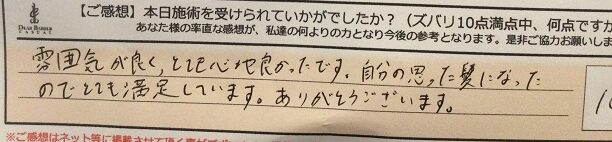 【ご感想】本日施術を受けられていかがでしたか？（ズバリ10点満点中、何点ですか
DEAR BARBER
CASUAL
あなた様の率直な感想が、私達の何よりの力となり今後の参考となります。是非ご協力お願いしま
雰囲気が良く、とても心地良かったです。自分の思った髪になった
のでとても満足しています。ありがとうございます。
※ご感想はネット等に掲載させて頂く事が